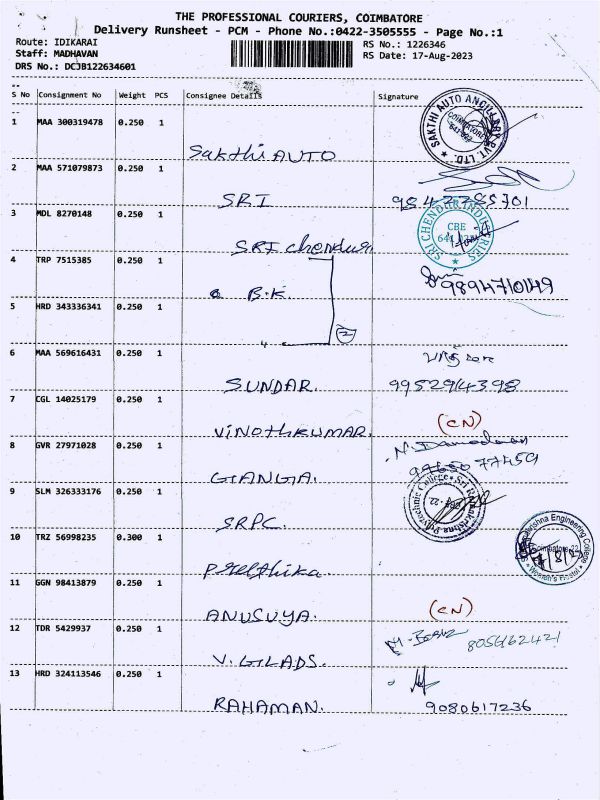 THE PROFESSIONAL COURIERS, COIMBATORE
Delivery Runsheet - PCM - Phone No.:0422-3505555 - Page No.:1
Route: IDIKARAI
RS No.: 1226346
Staff: MADHAVAN
RS Date: 17-Aug-2023
DRS No.: DCJB122634601
S No Consignment No Weight PCS Consignee Details Signature
1 MAA 300319478 0.250 1
Sakthi AUTO
SAKTHI AUTO ANCILLARY PVT. LTD.
COIMBATORE
2 MAA 571079873 0.250 1
SRI 9842285701
3 MDL 8270148 0.250 1
SRI chendur
SRI CHENDUR INDUSTRIES
CBE
4 TRP 7515385 0.250 1
B.K 9894710149
5 HRD 343336341 0.250 1
2
6 MAA 569616431 0.250 1
SUNDAR. 9952914398
7 CGL 14025179 0.250 1
VINOTHKUMAR. (CN)
8 GVR 27971028 0.250 1
N. Damodaran
GANGA. 99650 77459
9 SLM 326333176 0.250 1
SRPC.
Sri Ramakrishna Polytechnic College
10 TRZ 56998235 0.300 1
Preethika.
Engineering College
Women's Hostel
11 GGN 98413879 0.250 1
ANUSUYA. (CN)
12 TDR 5429937 0.250 1
V. GILADS. 805662421
13 HRD 324113546 0.250 1
RAHAMAN. 9080617236